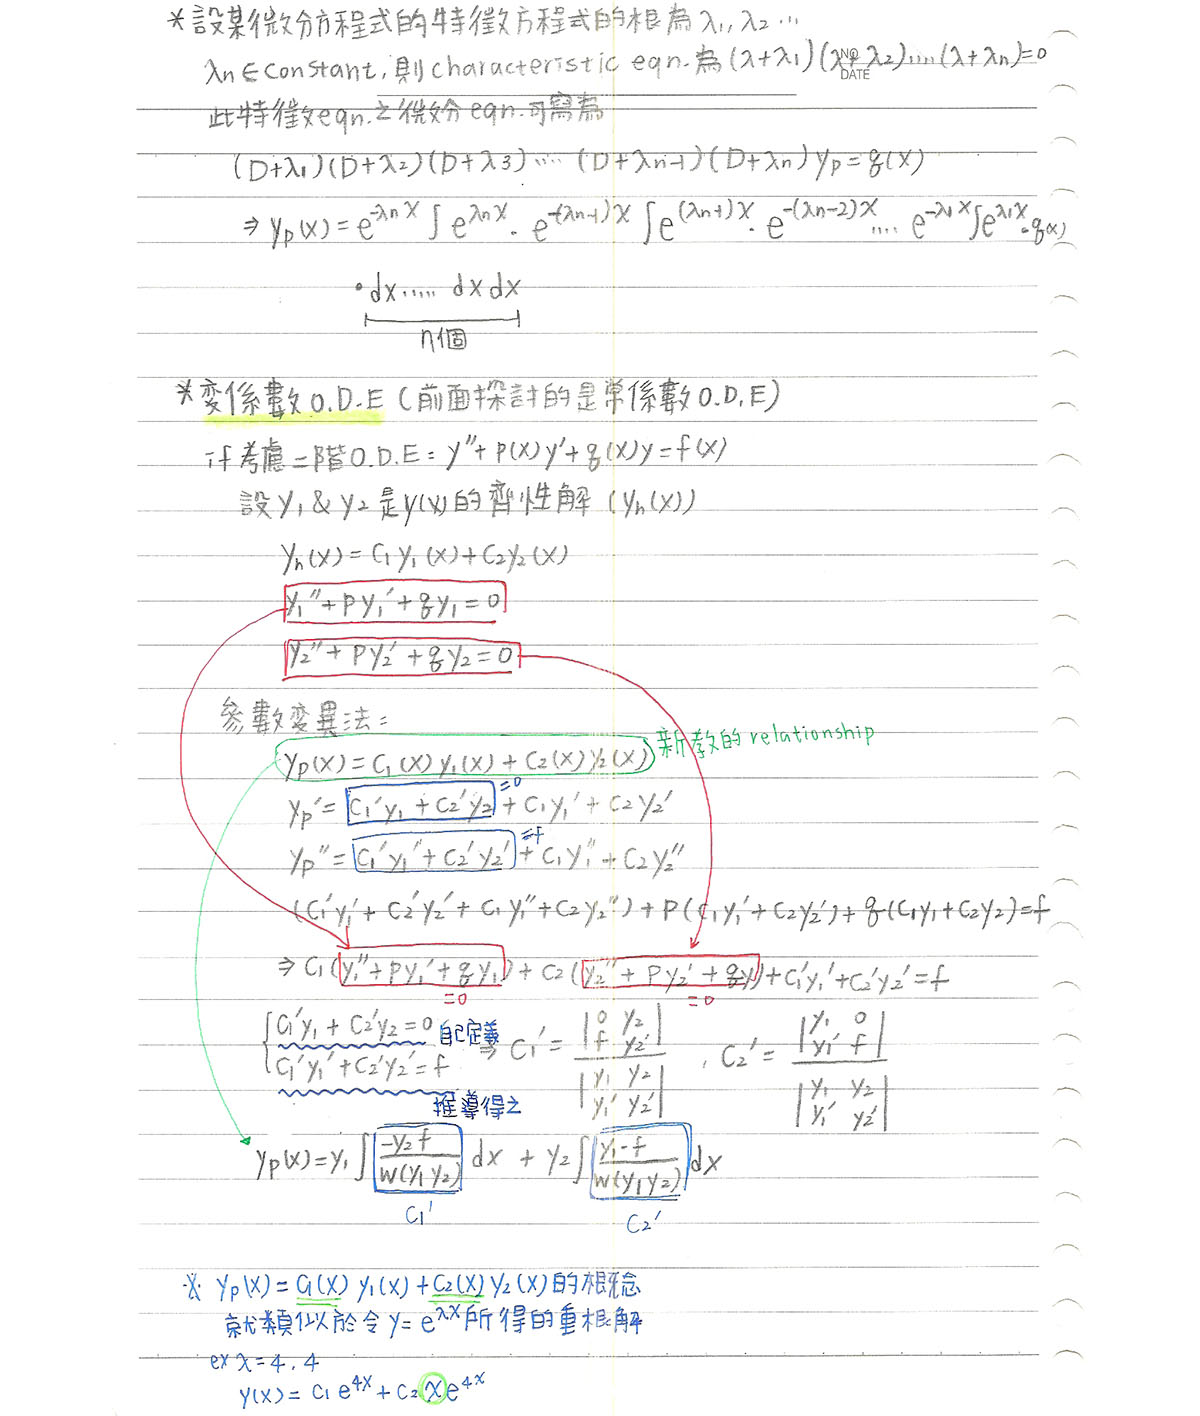 *設某微分方程式的特徵方程式的根為 λ₁, λ₂ …
λn ∈ constant, 則 characteristic eqn. 為 (λ+λ₁)(λ+λ₂)....(λ+λn)=0
NO
DATE
此特徵eqn.之微分 eqn.可寫為
(D+λ₁)(D+λ₂)(D+λ₃)…. (D+λn-1)(D+λn) yp = q(x)
⇒ yp(x) = e^{-λn x} ∫ e^{λn x} · e^{-(λn-1)x} ∫ e^{(λn-1)x} · e^{-(λn-2)x} .... e^{-λ₁x} ∫ e^{λ₁x} · q(x)
·dx..... dx dx
n個
*変係數 O.D.E (前面探討的是常係數 O.D.E)
if 考慮二階O.D.E: y''+p(x)y'+q(x)y=f(x)
設 y₁ & y₂ 是 y(x) 的齊性解 (yh(x))
yh(x) = C₁y₁(x)+C₂y₂(x)
y₁''+py₁'+qy₁=0
y₂''+py₂'+qy₂=0
參數変異法:
yp(x) = C₁(x)y₁(x) + C₂(x)y₂(x) 新教的 relationship
yp' = C₁'y₁ + C₂'y₂ =0 + C₁y₁' + C₂y₂'
yp'' = C₁'y₁'' + C₂'y₂' =f + C₁y₁'' + C₂y₂''
(C₁'y₁' + C₂'y₂' + C₁y₁''+C₂y₂'') + p(C₁y₁'+C₂y₂') + q(C₁y₁+C₂y₂)=f
⇒ C₁(y₁''+py₁'+qy₁) + C₂(y₂''+py₂'+qy)+C₁'y₁'+C₂'y₂'=f
=0 =0
{C₁'y₁ + C₂'y₂ = 0 自己定義 ⇒ C₁' = |0 y₂; f y₂'| / |y₁ y₂; y₁' y₂'| , C₂' = |y₁ 0; y₁' f| / |y₁ y₂; y₁' y₂'|
{C₁'y₁'+C₂'y₂'=f
推導得之
yp(x)=y₁ ∫ -y₂f / w(y₁y₂) dx + y₂ ∫ y₁-f / w(y₁y₂) dx
C₁' C₂'
※ yp(x) = C₁(x) y₁(x) + C₂(x) y₂(x) 的概念
就類似於令 y = e^{λx} 所得的重根解
ex λ=4, 4
y(x) = C₁e^{4x} + C₂ x e^{4x}